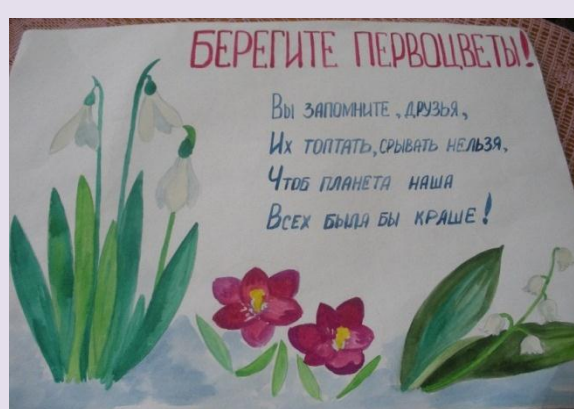 БЕРЕГИТЕ ПЕРВОЦВЕТЫ!
Вы запомните, друзья,
Их топтать, срывать нельзя,
Чтоб планета наша
Всех была бы краше!